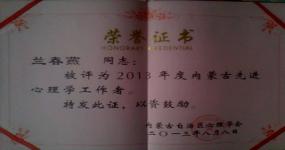 荣誉证书
HONORARY CREDENTIAL
兰春燕 同志：
被评为2013年度内蒙古先进
心理学工作者。
特发此证，以资鼓励。
内蒙古自治区心理学会
二〇一三年八月八日